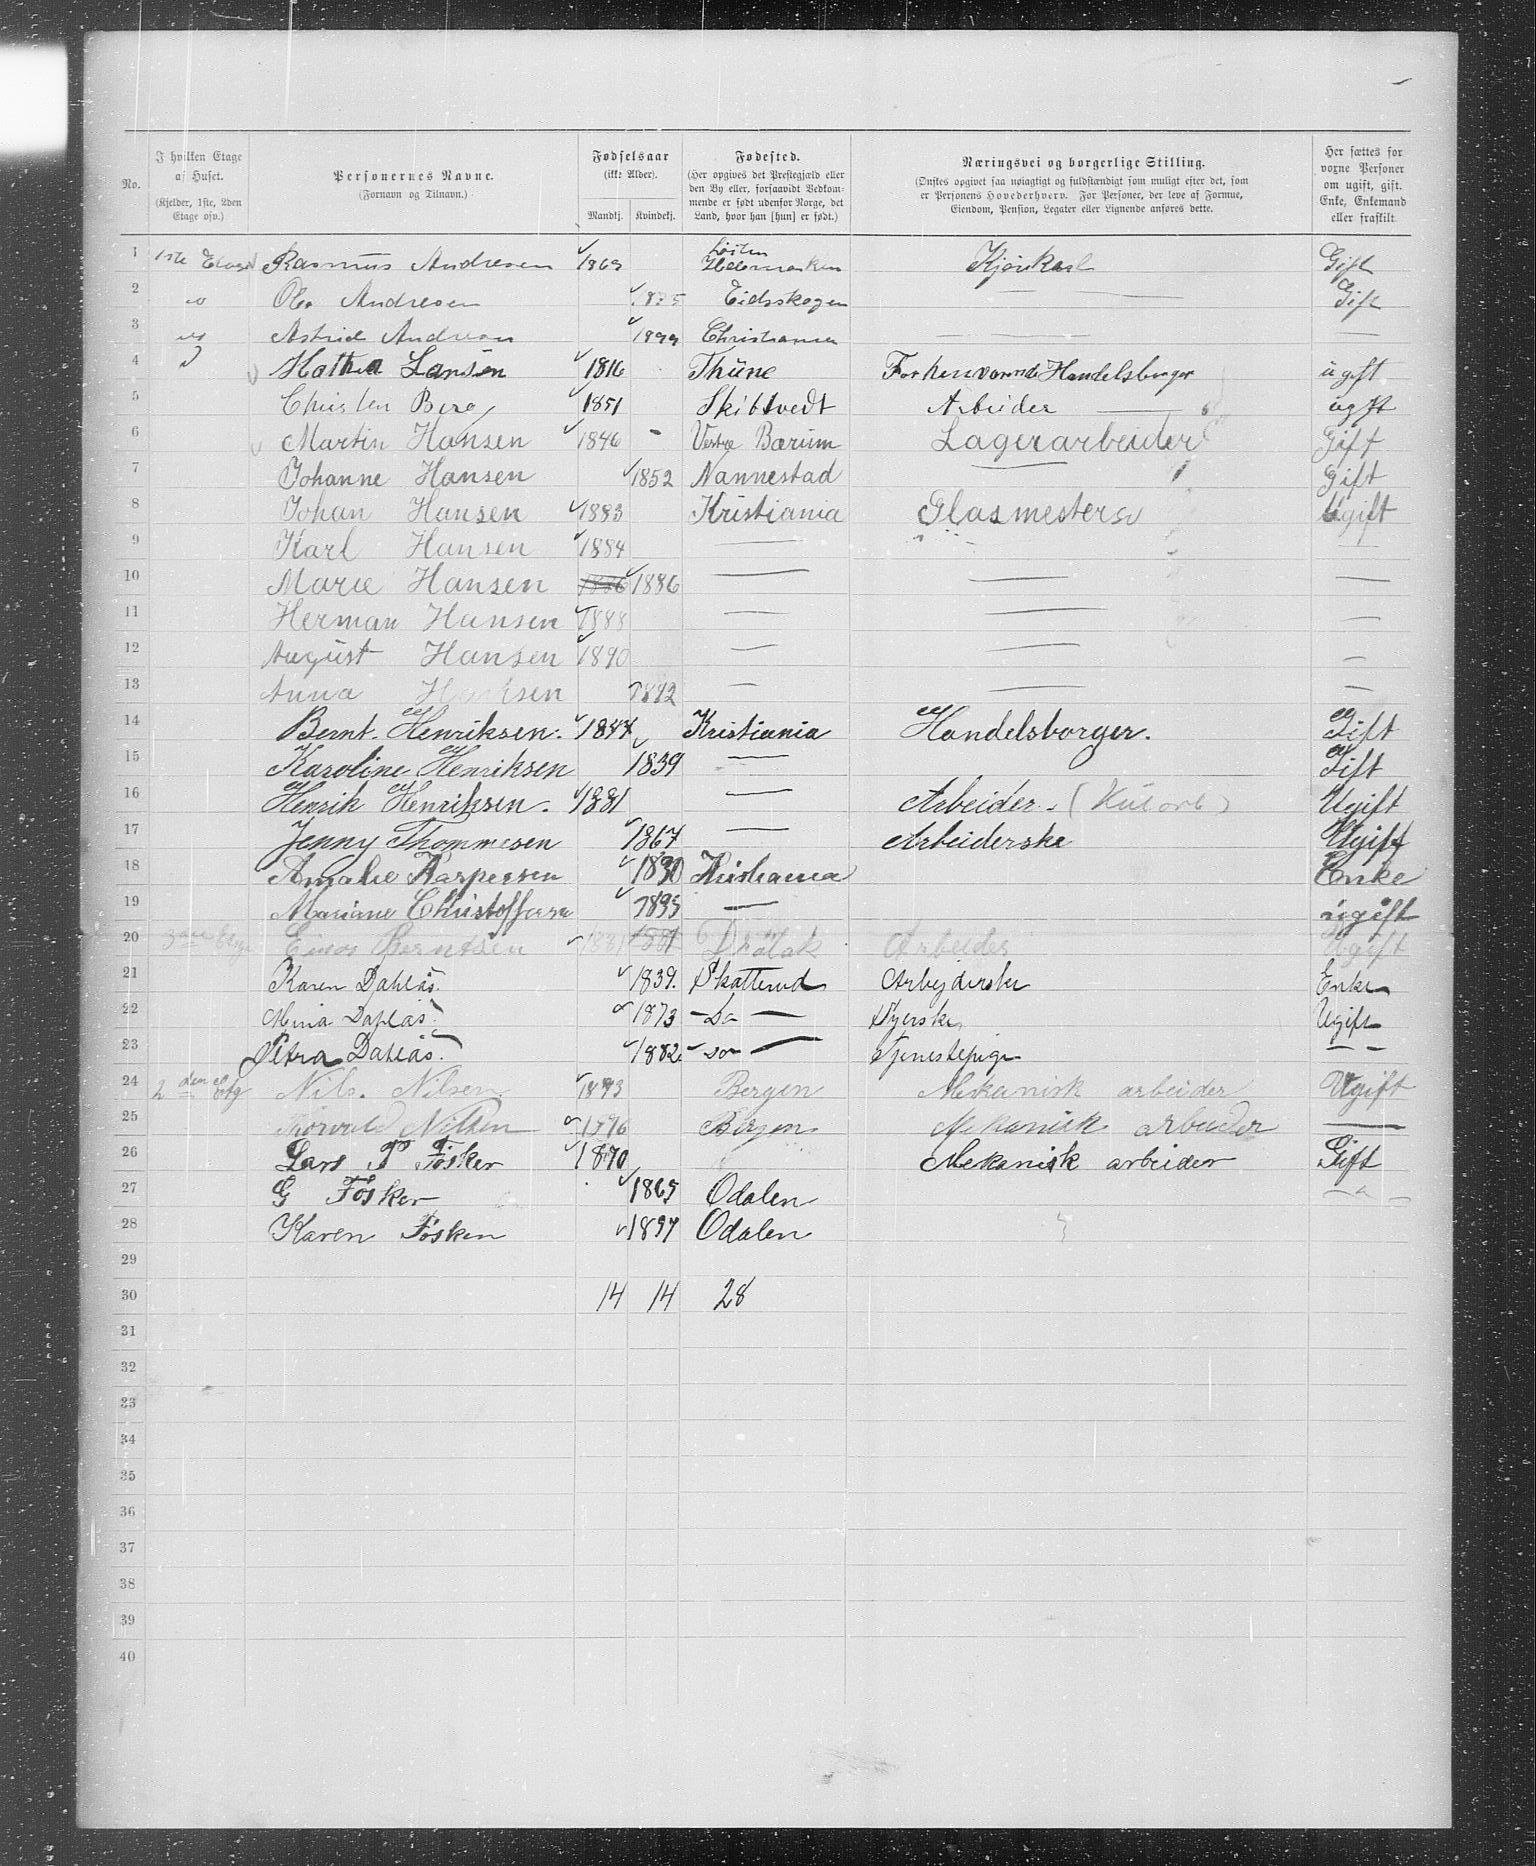 No.
I hvilken Etage af Huset. (Kjelder, 1ste, 2den Etage osv.)
Personernes Navne. (Fornavn og Tilnavn.)
Fødselsaar (ikke Alder). Mandkj. Kvindekj.
Fødested. (Her opgives det Prestegjæld eller den By eller, forsaavidt Vedkommende er født udenfor Norge, det Land, hvor han [hun] er født.)
Næringsvei og borgerlige Stilling. (Ønskes opgivet saa nøiagtigt og fuldstændigt som muligt efter det, som er Personens Hovederhverv. For Personer, der leve af Formue, Eiendom, Pension, Legater eller Lignende anføres dette.
Her sættes for voxne Personer om ugift, gift. Enke, Enkemand eller fraskilt.
1 1ste Etage Rasmus Andresen 1869 Løiten Hedemarken Kjørekarl Gift
2 " Andresen 1875 Eidsskogen — Gift
3 " Astrid Andresen 1899 Christiania — — —
4 Larsen 1816 Thüne Forhenværende Handelsborger ugift
5 Christen Berg 1851 Skibtvedt Arbeider — ugift
6 Martin Hansen 1846 - Vestre Bærum Lagerarbeider Gift
7 Johanne Hansen 1852 Nannestad — Gift
8 Johan Hansen 1883 Kristiania Glasmestersv Ugift
9 Karl Hansen 1884 — —
10 Marie Hansen 1886 1886 — — —
11 Herman Hansen 1888 — — —
12 August Hansen 1890 — — —
13 Anna Hansen 1892 — — —
14 Bernt. Henriksen. 1844 Kristiania Handelsborger. Gift
15 Karoline Henriksen 1839 — Gift
16 Henrik Henriksen. 1881 — Arbeider. Ugift
17 Jenny Thommesen 1867 — Arbeiderske Ugift
18 Amalie Kaspersen 1830 Kristiania Enke
19 Mariane 1895 — ugift
20 Etage Berntsen 1881 1881 Drøbak Arbeider Ugift
21 Karen Dahlås. 1839. Skatterud Arbejderske Enke
22 Mina Dahlås. 1873 - Do — Syerske Ugift
23 Petra Dahlås. 1882 - do — Tjenestepige — —
24 2den Etg Nils. Nilsen 1873 Bergen Mekanisk arbeider Ugift
25 Thorvald Nilsen 1876 Bergen Mekanisk arbeider —
26 Lars P Fosker 1870 Mekanisk arbeider Gift
27 G Fosker 1865 Odalen
28 Karen Fosken 1897 Odalen
29
30 14 14 28
31
32
33
34
35
36
37
38
39
40